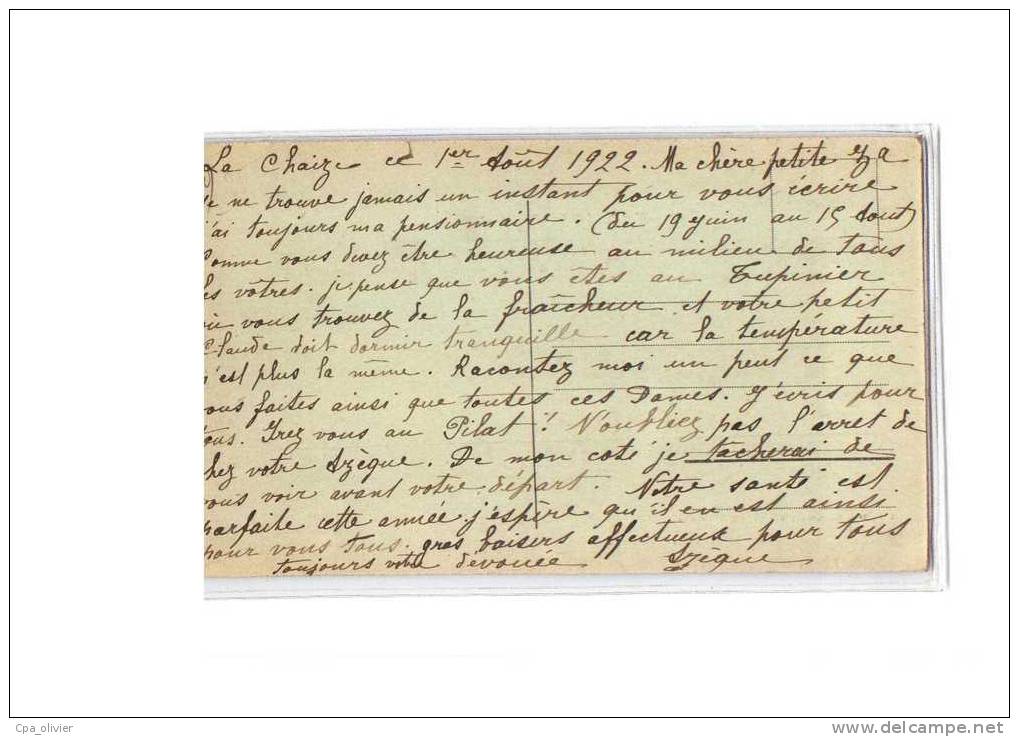 La Chaize ce 1er Août 1922. Ma chère petite
Je ne trouve jamais un instant pour vous écrire
j'ai toujours ma pensionnaire. (du 19 Juin au 15 Aout)
Comme vous devez être heureuse au milieu de tous
les vôtres. je pense que vous êtes au Tupinier
où vous trouvez de la fraîcheur et votre petit
Claude doit dormir tranquille car la température
n'est plus la même. Racontez moi un peut ce que
vous faites ainsi que toutes ces Dames. J'écris pour
tous. Irez vous au Pilat! N'oubliez pas l'arret de
chez votre Izèque. De mon coté je tacherai de
vous voir avant votre départ. Notre santé est
parfaite cette année j'espère qu'il en est ainsi
pour vous tous. gros baisers affectueux pour tous
toujours votre dévouée Izèque
Cpa_olivier
www.delcampe.net